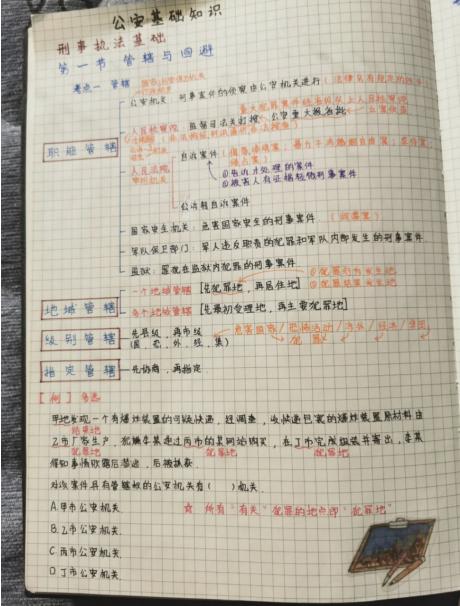 公安基础知识
刑事执法基础
第一节 管辖与回避
考点一 管辖
公安机关：刑事案件的侦查由公安机关进行
职能管辖
人民检察院
人民法院
自诉案件
①告诉才处理的案件
②被害人有证据轻微刑事案件
公诉转自诉案件
国家安全机关：危害国家安全的刑事案件
军队保卫部门：军人违反职责的犯罪和军队内部发生的刑事案件
监狱：罪犯在监狱内犯罪的刑事案件
地域管辖
一个地域管辖 [先犯罪地，再居住地]
多个地域管辖 [先最初受理地，再主要犯罪地]
级别管辖
先县级，再市级
(国，恐，外，经，集)
危害国家/恐怖活动/涉外/经济/集团
犯罪
指定管辖 先协商，再指定
[例] 多选
甲地发现一个有爆炸装置的可疑快递，经调查，该快递包裹的爆炸装置原材料由
结果地
乙市厂家生产，犯嫌李某通过丙市的某网站购买，在丁市完成组装并寄出，李某
犯罪地 犯罪地 犯罪地
得知事情败露后潜逃，后被抓获
对该案件具有管辖权的公安机关有( )机关
A.甲市公安机关
☆ 所有"有关"犯罪的地点即"犯罪地"
B.乙市公安机关
C.丙市公安机关
D.丁市公安机关